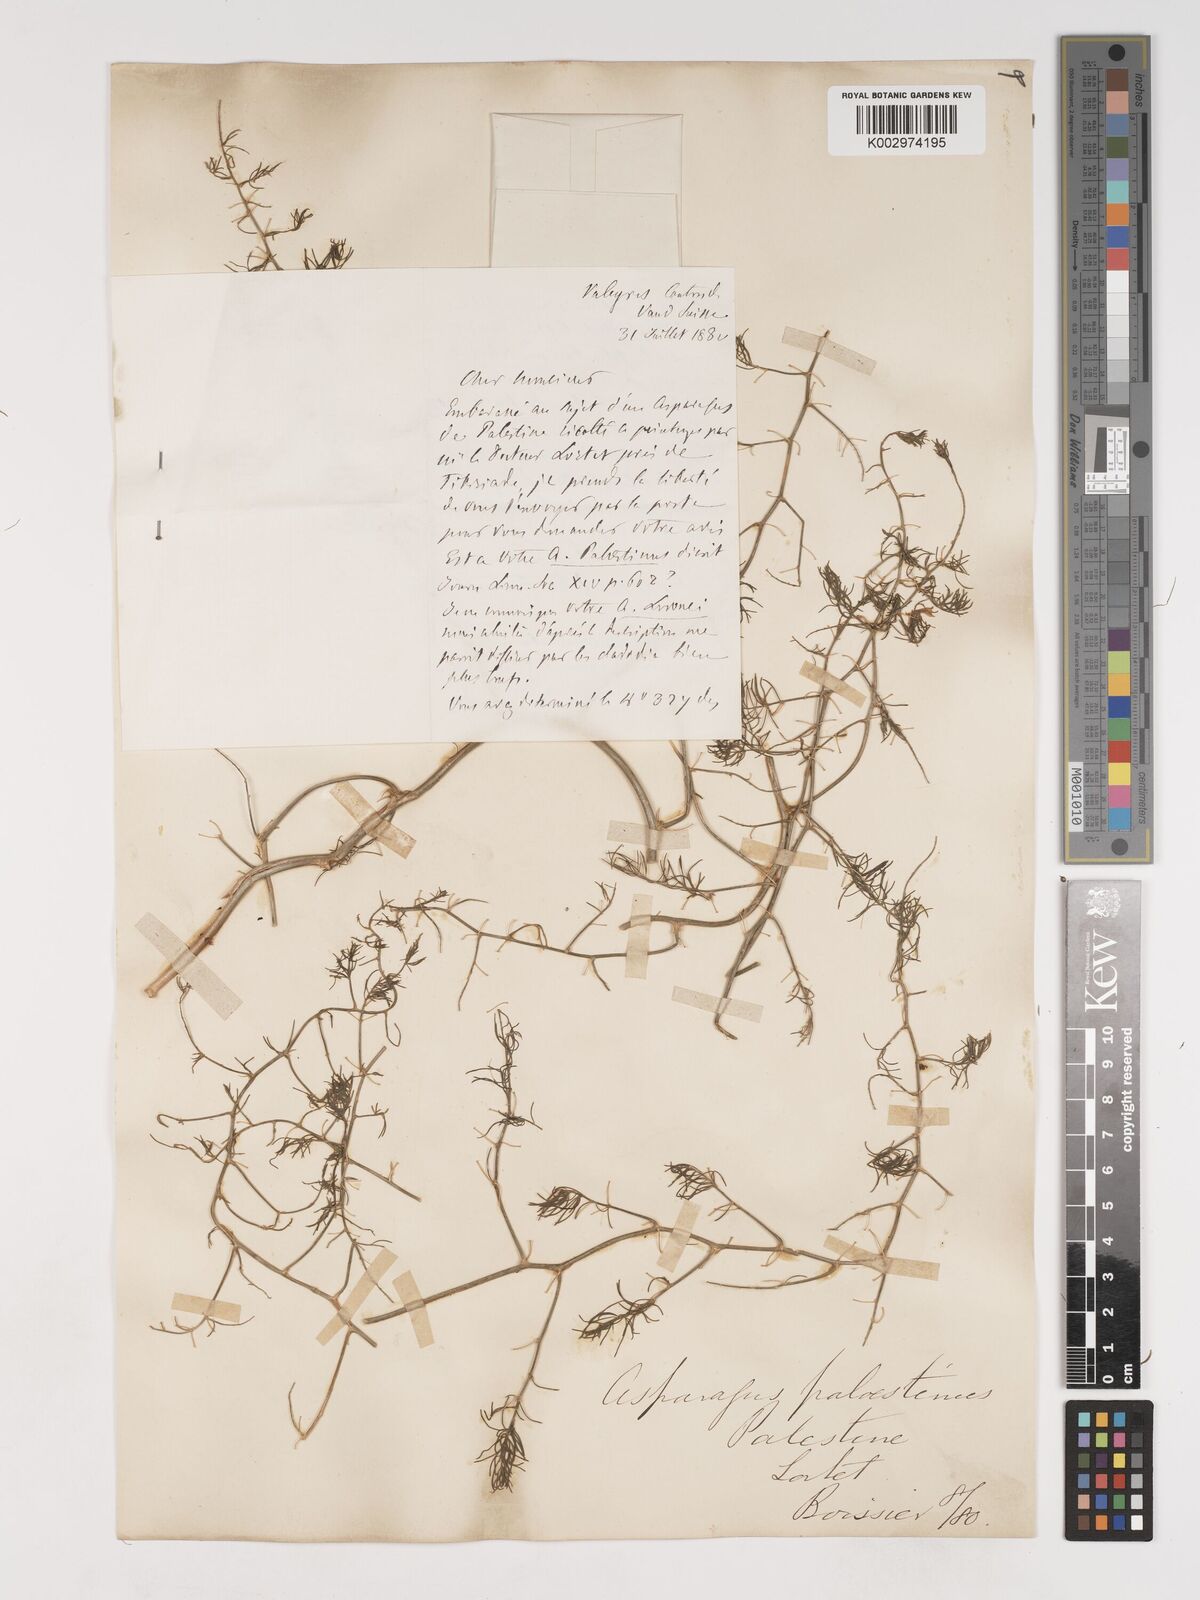 ROYAL BOTANIC GARDENS KEW
K002974195
Valeyres
Vaud Suisse
31 Juillet 1880
Cher monsieur
au sujet d'un Asparagus
de Palestine ce printemps par
mr le Docteur Lortet près de
Tiberiade, je prends la liberté
de vous l'envoyer par la poste
pour vous demander votre avis
Est ce votre A. Palæstinus décrit
Linn. Soc XIV p. 602?
votre A.
d'après la description me
par les cladodia bien
plus longs.
Vous avez determiné le No 327 des
Asparagus palæstinus
Palestine
Lortet
Boissier 8/80.
inches
centimeters
Density
Don Williams
M001010
Kew
Royal Botanic Gardens
copyright reserved
0 1 2 3 4 5 6 7 8 9 10
cm